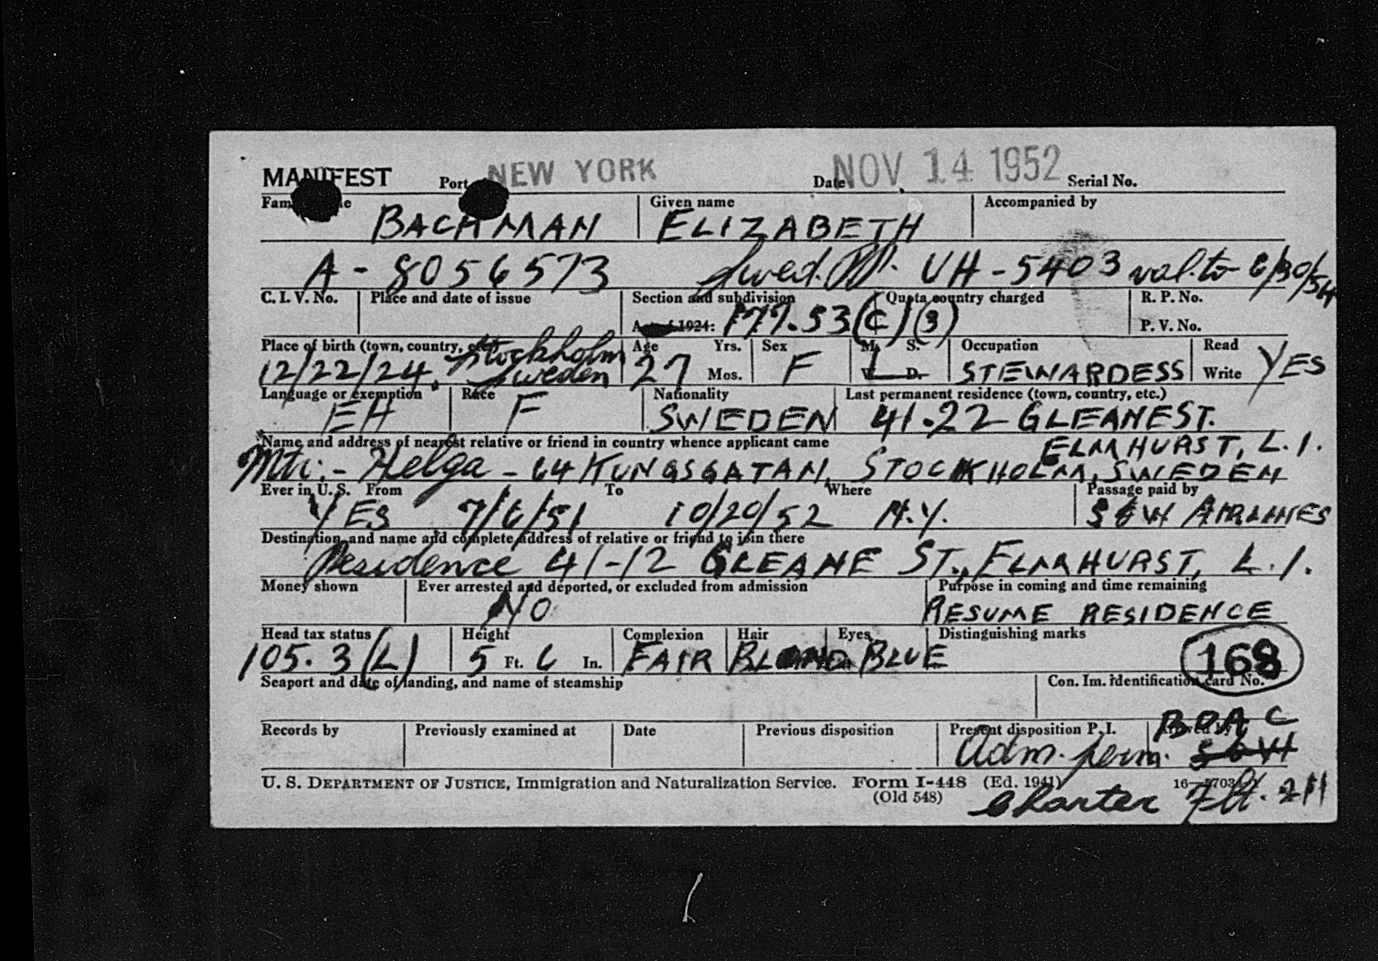 MANIFEST Port NEW YORK Date NOV 14 1952 Serial No.
Fam e Given name Accompanied by
BACHMAN ELIZABETH
A-8056573 Swed. PP. UH-5403 val. to 6/30/54
C. I. V. No. Place and date of issue Section and subdivision Quota country charged R. P. No.
1924: 177.53(C)(3) P. V. No.
Place of birth (town, country, etc.) Age Yrs. Sex M. S. Occupation Read
12/22/24. Stockholm Sweden 27 Mos. F W. D. STEWARDESS Write YES
Language or exemption Race Nationality Last permanent residence (town, country, etc.)
EH F SWEDEN 41-22 GLEANE ST.
Name and address of nearest relative or friend in country whence applicant came ELMHURST, L.I.
Mth:- Helga - 64 KUNGSGATAN, STOCKHOLM, SWEDEN
Ever in U. S. From To Where Passage paid by
YES 7/6/51 10/20/52 N.Y. S&W AIRLINES
Destination, and name and complete address of relative or friend to join there
Residence 41-12 GLEANE ST., ELMHURST, L.I.
Money shown Ever arrested and deported, or excluded from admission Purpose in coming and time remaining
NO RESUME RESIDENCE
Head tax status Height Complexion Hair Eyes Distinguishing marks
105.3(L) 5 Ft. 6 In. FAIR BLOND BLUE 168
Seaport and date of landing, and name of steamship Con. Im. identification card No.
BOAC
Records by Previously examined at Date Previous disposition Present disposition P. I.
Adm. perm. S&W
U. S. DEPARTMENT OF JUSTICE, Immigration and Naturalization Service. Form I-448 (Ed. 1941)
(Old 548) Charter Flt. 211